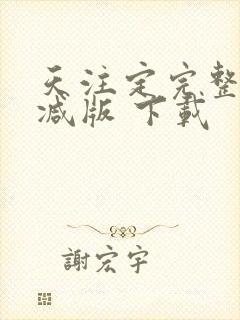 天注定完整
减版 下载
謝宏宇